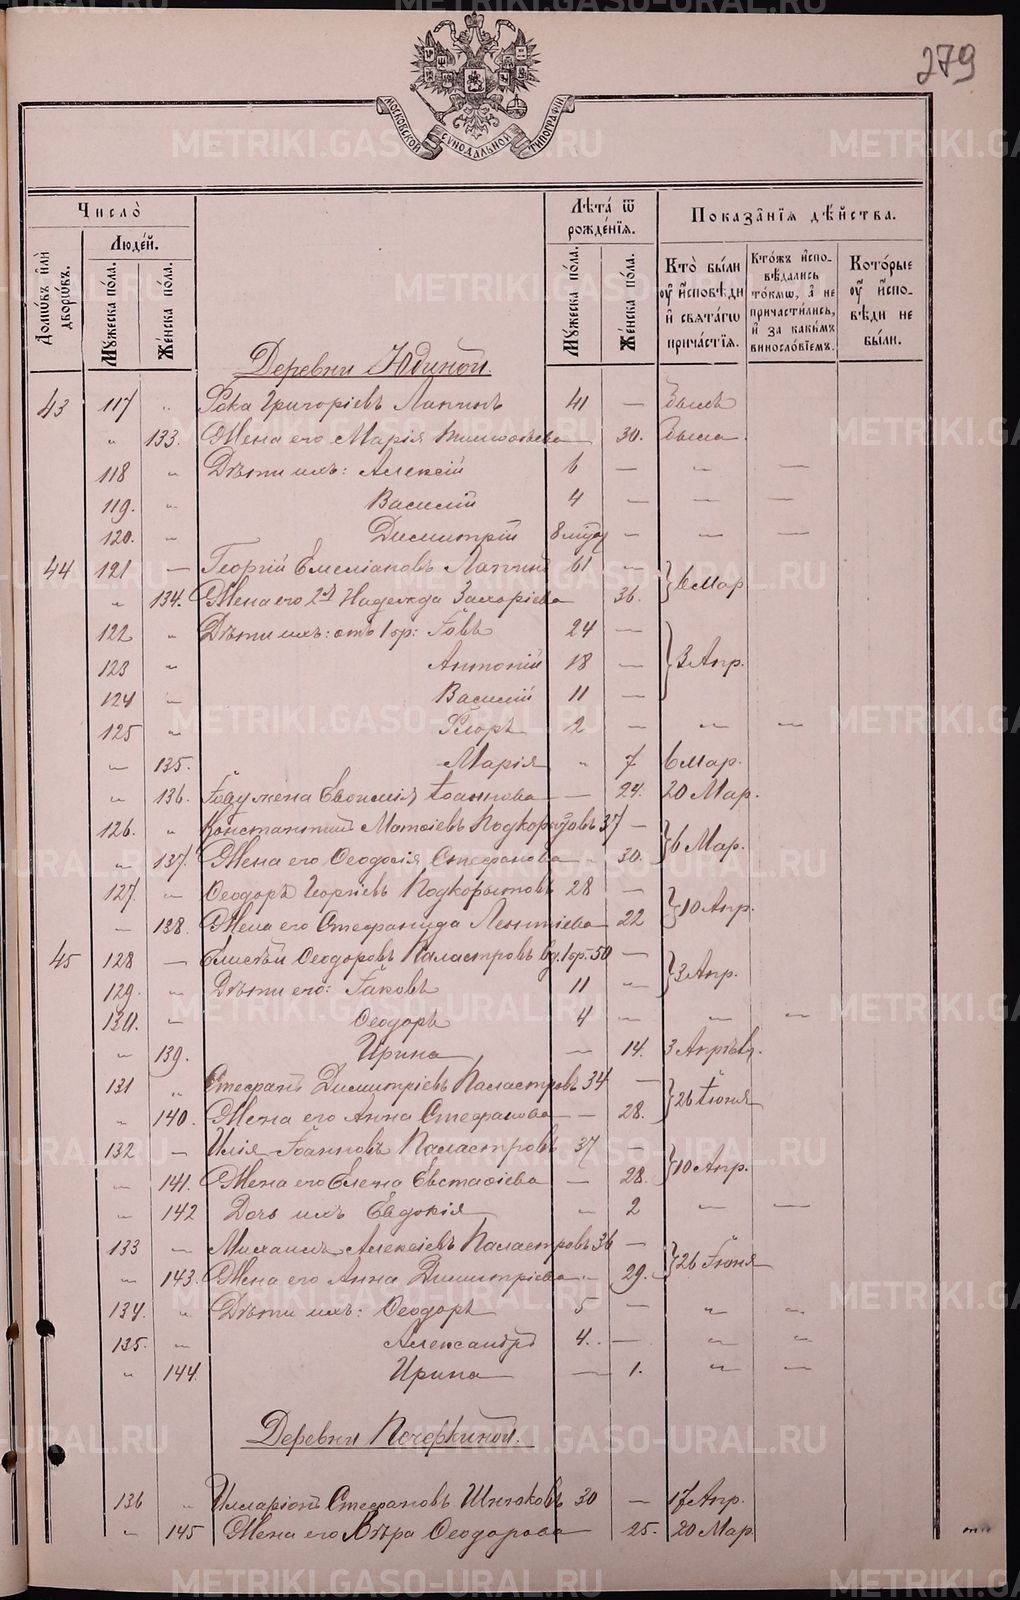 279
МОСКОВСКОЙ СѴНОДАЛЬНОЙ ТИПОГРАФІИ
Число̀
Домѡ́въ и҆лѝ дворѡ́въ.
Люде́й.
Мꙋ́жеска по́ла.
Же́нска по́ла.
Лѣта́ ѿ рожде́нїѧ.
Мꙋ́жеска по́ла.
Же́нска по́ла.
Показа̑нїѧ дѣ́йства.
Кто̀ бы́ли ᲂу҆ и҆сповѣ́ди и҆ свѧта́гѡ прича́стїѧ.
Кто́жъ и҆спо-вѣ́дались то́кмѡ, а҆ не причасти́лись, и҆ за каки́мъ винослові́емъ.
Кото́рые ᲂу҆ и҆спо-вѣ́ди не бы́ли.
Деревни Юдиной.
43 117 " Фока Григоріевъ Лапинъ 41 — Былъ
" 133. Жена его Марія — 30. Была
118 " Дѣти ихъ: Алексій 6 — " —
119. " Василій 4 — — —
120. " Димитрій 8 — — —
44 121 — Георгій Емеліановъ Лапинъ 61 — } 6 Мар
" 134. Жена его 2 Надежда Захаріева 36.
122 " Дѣти ихъ: отъ 1 бр: Іовъ 24 — } 3 Апр.
123 " Антоній 18 —
124 — Василій 11 —
125 " 2 — " —
— 135. Марія " 7 6 Мар.
" 136. жена Евѳимія Іоаннова — 24. 20 Мар.
126. " Константинъ Матѳіевъ Подкорытовъ 37 — } 6 Мар.
" 137 Жена его Ѳеодосія Стефанова " 30.
127. " Ѳеодоръ Георгіевъ Подкорытовъ 28 — } 10 Апр.
— 138. Жена его Стефанида Леонтіева 22
45 128 — Елисѣй Ѳеодоровъ Паластровъ вд. 1 бр. 50 — } 3 Апр.
129. " Дѣти его: Іаковъ 11 "
130. " Ѳеодоръ 4 — " —
" 139. Ирина — 14. 3 Апрѣл.
131 " Стефанъ Димитріевъ Паластровъ 34 — } 26 Іюня
" 140. Жена его Анна Стефанова — 28.
132 — Илія Іоанновъ Паластровъ 37 — } 10 Апр.
" 141. Жена его Елена Евстафіева — 28.
" 142 Дочь ихъ Евдокія " 2 — —
133 — Михаилъ Алексіевъ Паластровъ 36 — } 26 Іюня
" 143. Жена его Анна Димитріева " 29.
134. " Дѣти ихъ: Ѳеодоръ 5 — " "
135. " Александръ 4. — " "
" 144. Ирина — 1. " —
Деревни Печеркиной.
136 " Илларіонъ Стефановъ 30 — 17 Апр.
" 145 Жена его Вѣра Ѳеодорова 25. 20 Мар
METRIKI.GASO-URAL.RU